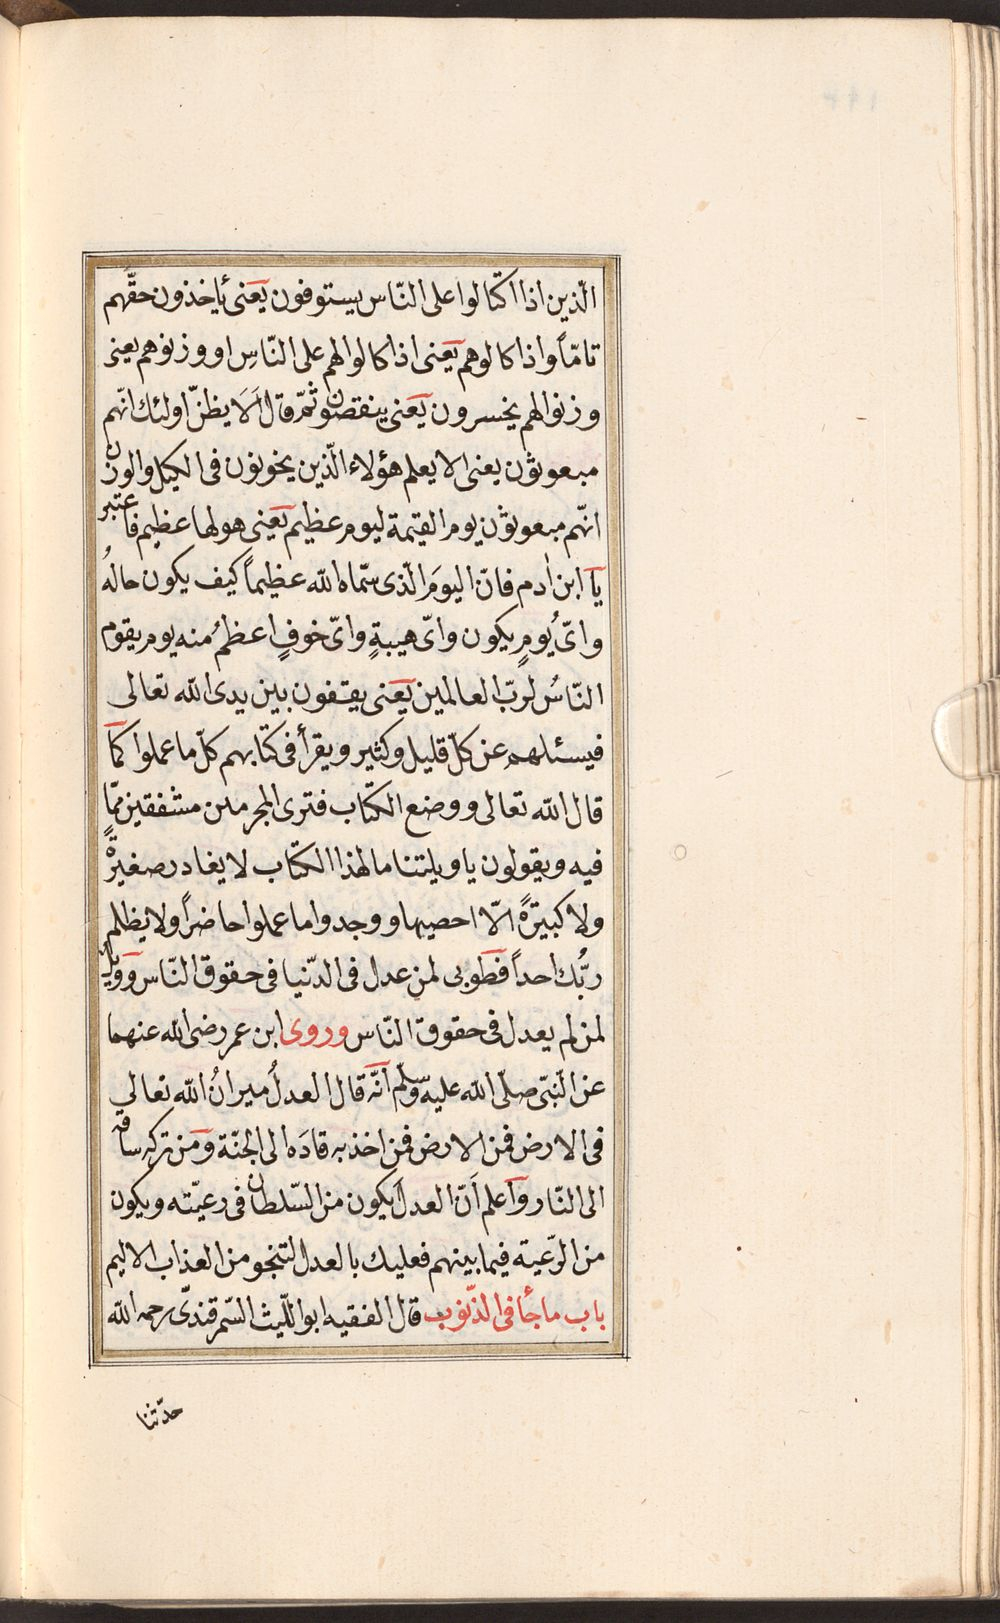 الّذين اذا اكتالوا على النّاس يستوفون يعنى يأخذون حقّهم
تامّاً واذا كالوهم يعنى اذا كالوا لهم على النّاسِ او وزنوهم يعنى
وزنوا لهم يخسرون يعنى ينقصون ثمّ قال اَلَا يظنّ اولئك انّهم
مبعوثون يعنى الا يعلم هؤلاء الّذين يخونون فى الكيل والوزن
انّهم مبعوثون يوم القيمة ليوم عظيم يعنى هولها عظيم فاعتبر
يا ابن ادم فانّ اليومَ الّذى سمّاه الله عظيماً كيف يكون حالهُ
واىّ يومٍ يكون واىّ هيبةٍ واىّ خوفٍ اعظمُ منه يوم يقوم
النّاسُ لربّ العالمين يعنى يقفون بين يدى الله تعالى
فيسئلهم عن كلّ قليل وكثير ويقرأ فى كتابهم كلّ ما عملوا كما
قال الله تعالى ووضع الكتاب فترى المجرمين مشفقين ممّا
فيه ويقولون يا ويلتنا ما لهذا الكتاب لا يغادر صغيرةً
ولا كبيرةً الّا احصيها ووجدوا ما عملوا حاضراً ولا يظلم
ربُّك احداً فطوبى لمن عدل فى الدّنيا فى حقوق النّاس وويلٌ
لمن لم يعدل فى حقوق النّاس وروى ابن عمر رضى الله عنهما
عن النّبىّ صلّى الله عليه وسلّم انّه قال العدلُ ميزانُ الله تعالى
فى الارض فمن الارض فمن اخذ به قادَه الى الجنّة ومن تركه ساقه
الى النّار واعلم اَنّ العدلَ يكون من السّلطان فى رعيّته ويكون
من الرّعية فيما بينهم فعليك بالعدل لتنجو من العذاب الاليم
باب ما جأ فى الذّنوب قال الفقيه ابو اللّيث السّمرقندىّ رحمه الله
حدّثنا